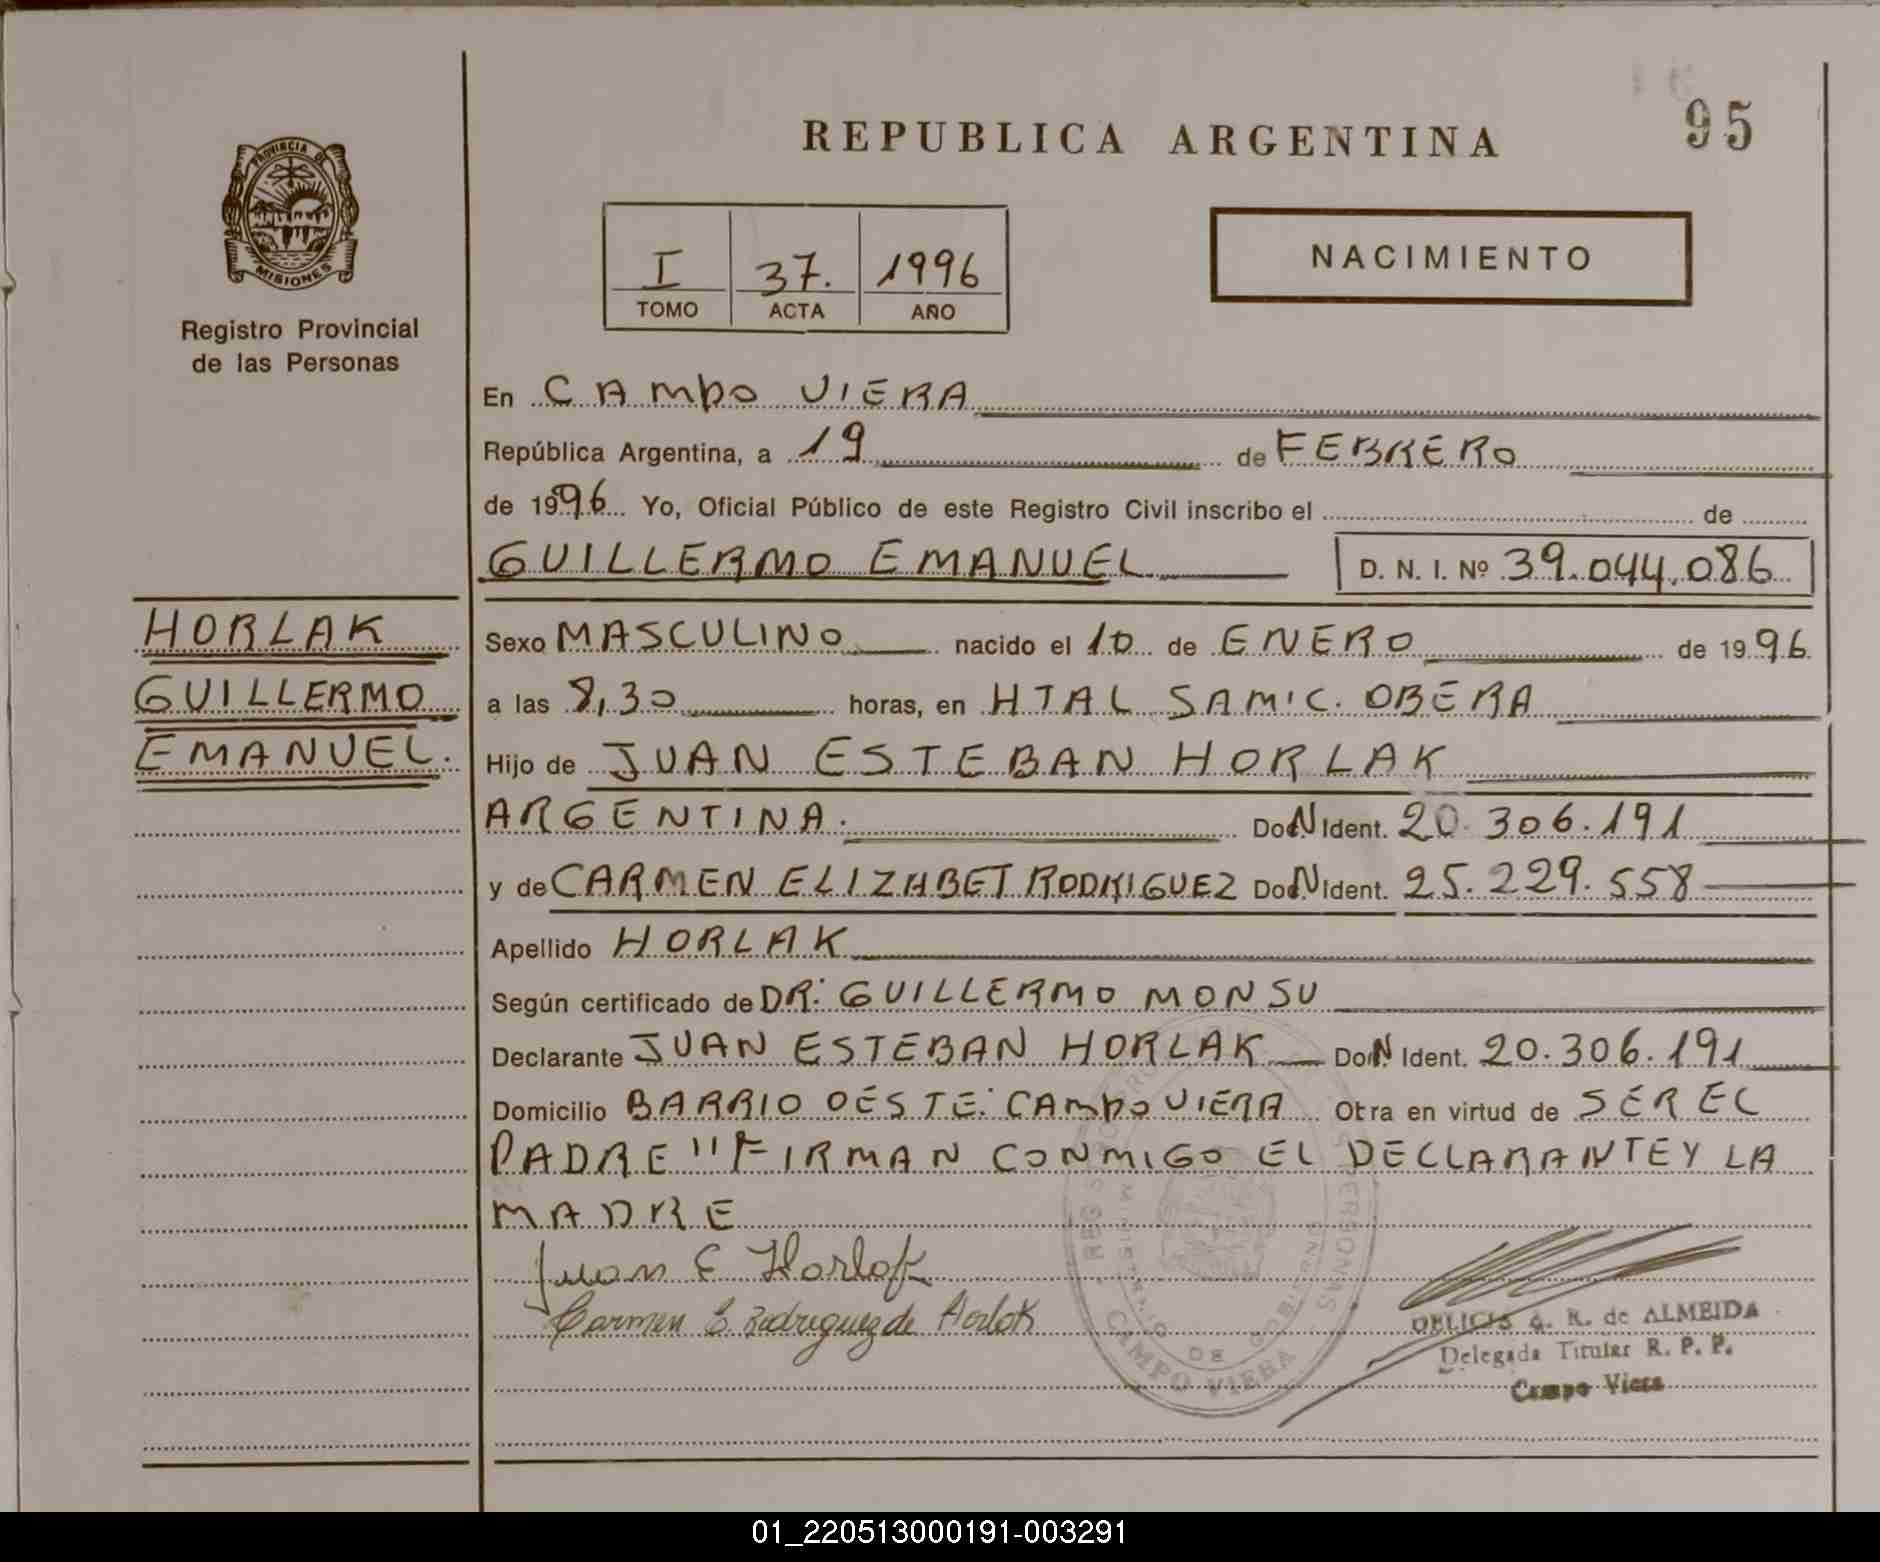 REPUBLICA ARGENTINA
95
PROVINCIA DE
MISIONES
Registro Provincial
de las Personas
I 37. 1996
TOMO ACTA AÑO
NACIMIENTO
En CAMPO VIERA
República Argentina, a 19 de FEBRERO
de 1996 Yo, Oficial Público de este Registro Civil inscribo el de
GUILLERMO EMANUEL D. N. I. Nº 39.044.086
HORLAK
GUILLERMO
EMANUEL.
Sexo MASCULINO nacido el 10 de ENERO de 1996
a las 8,30 horas, en HTAL SAMIC. OBERA
Hijo de JUAN ESTEBAN HORLAK
ARGENTINA. Doc. Ident. 20.306.191
y de CARMEN ELIZABET RODRIGUEZ Doc. Ident. 25.229.558
Apellido HORLAK
Según certificado de DR: GUILLERMO MONSU
Declarante JUAN ESTEBAN HORLAK Doc. Ident. 20.306.191
Domicilio BARRIO OESTE. CAMPO VIERA Otra en virtud de SER EL
PADRE "FIRMAN CONMIGO EL DECLARANTE Y LA
MADRE
Juan E Horlak
Carmen E. Rodriguez de Horlak
CAMPO VIERA
DELICIA A. R. de ALMEIDA
Delegada Titular R. P. P.
Campo Viera
01_220513000191-003291